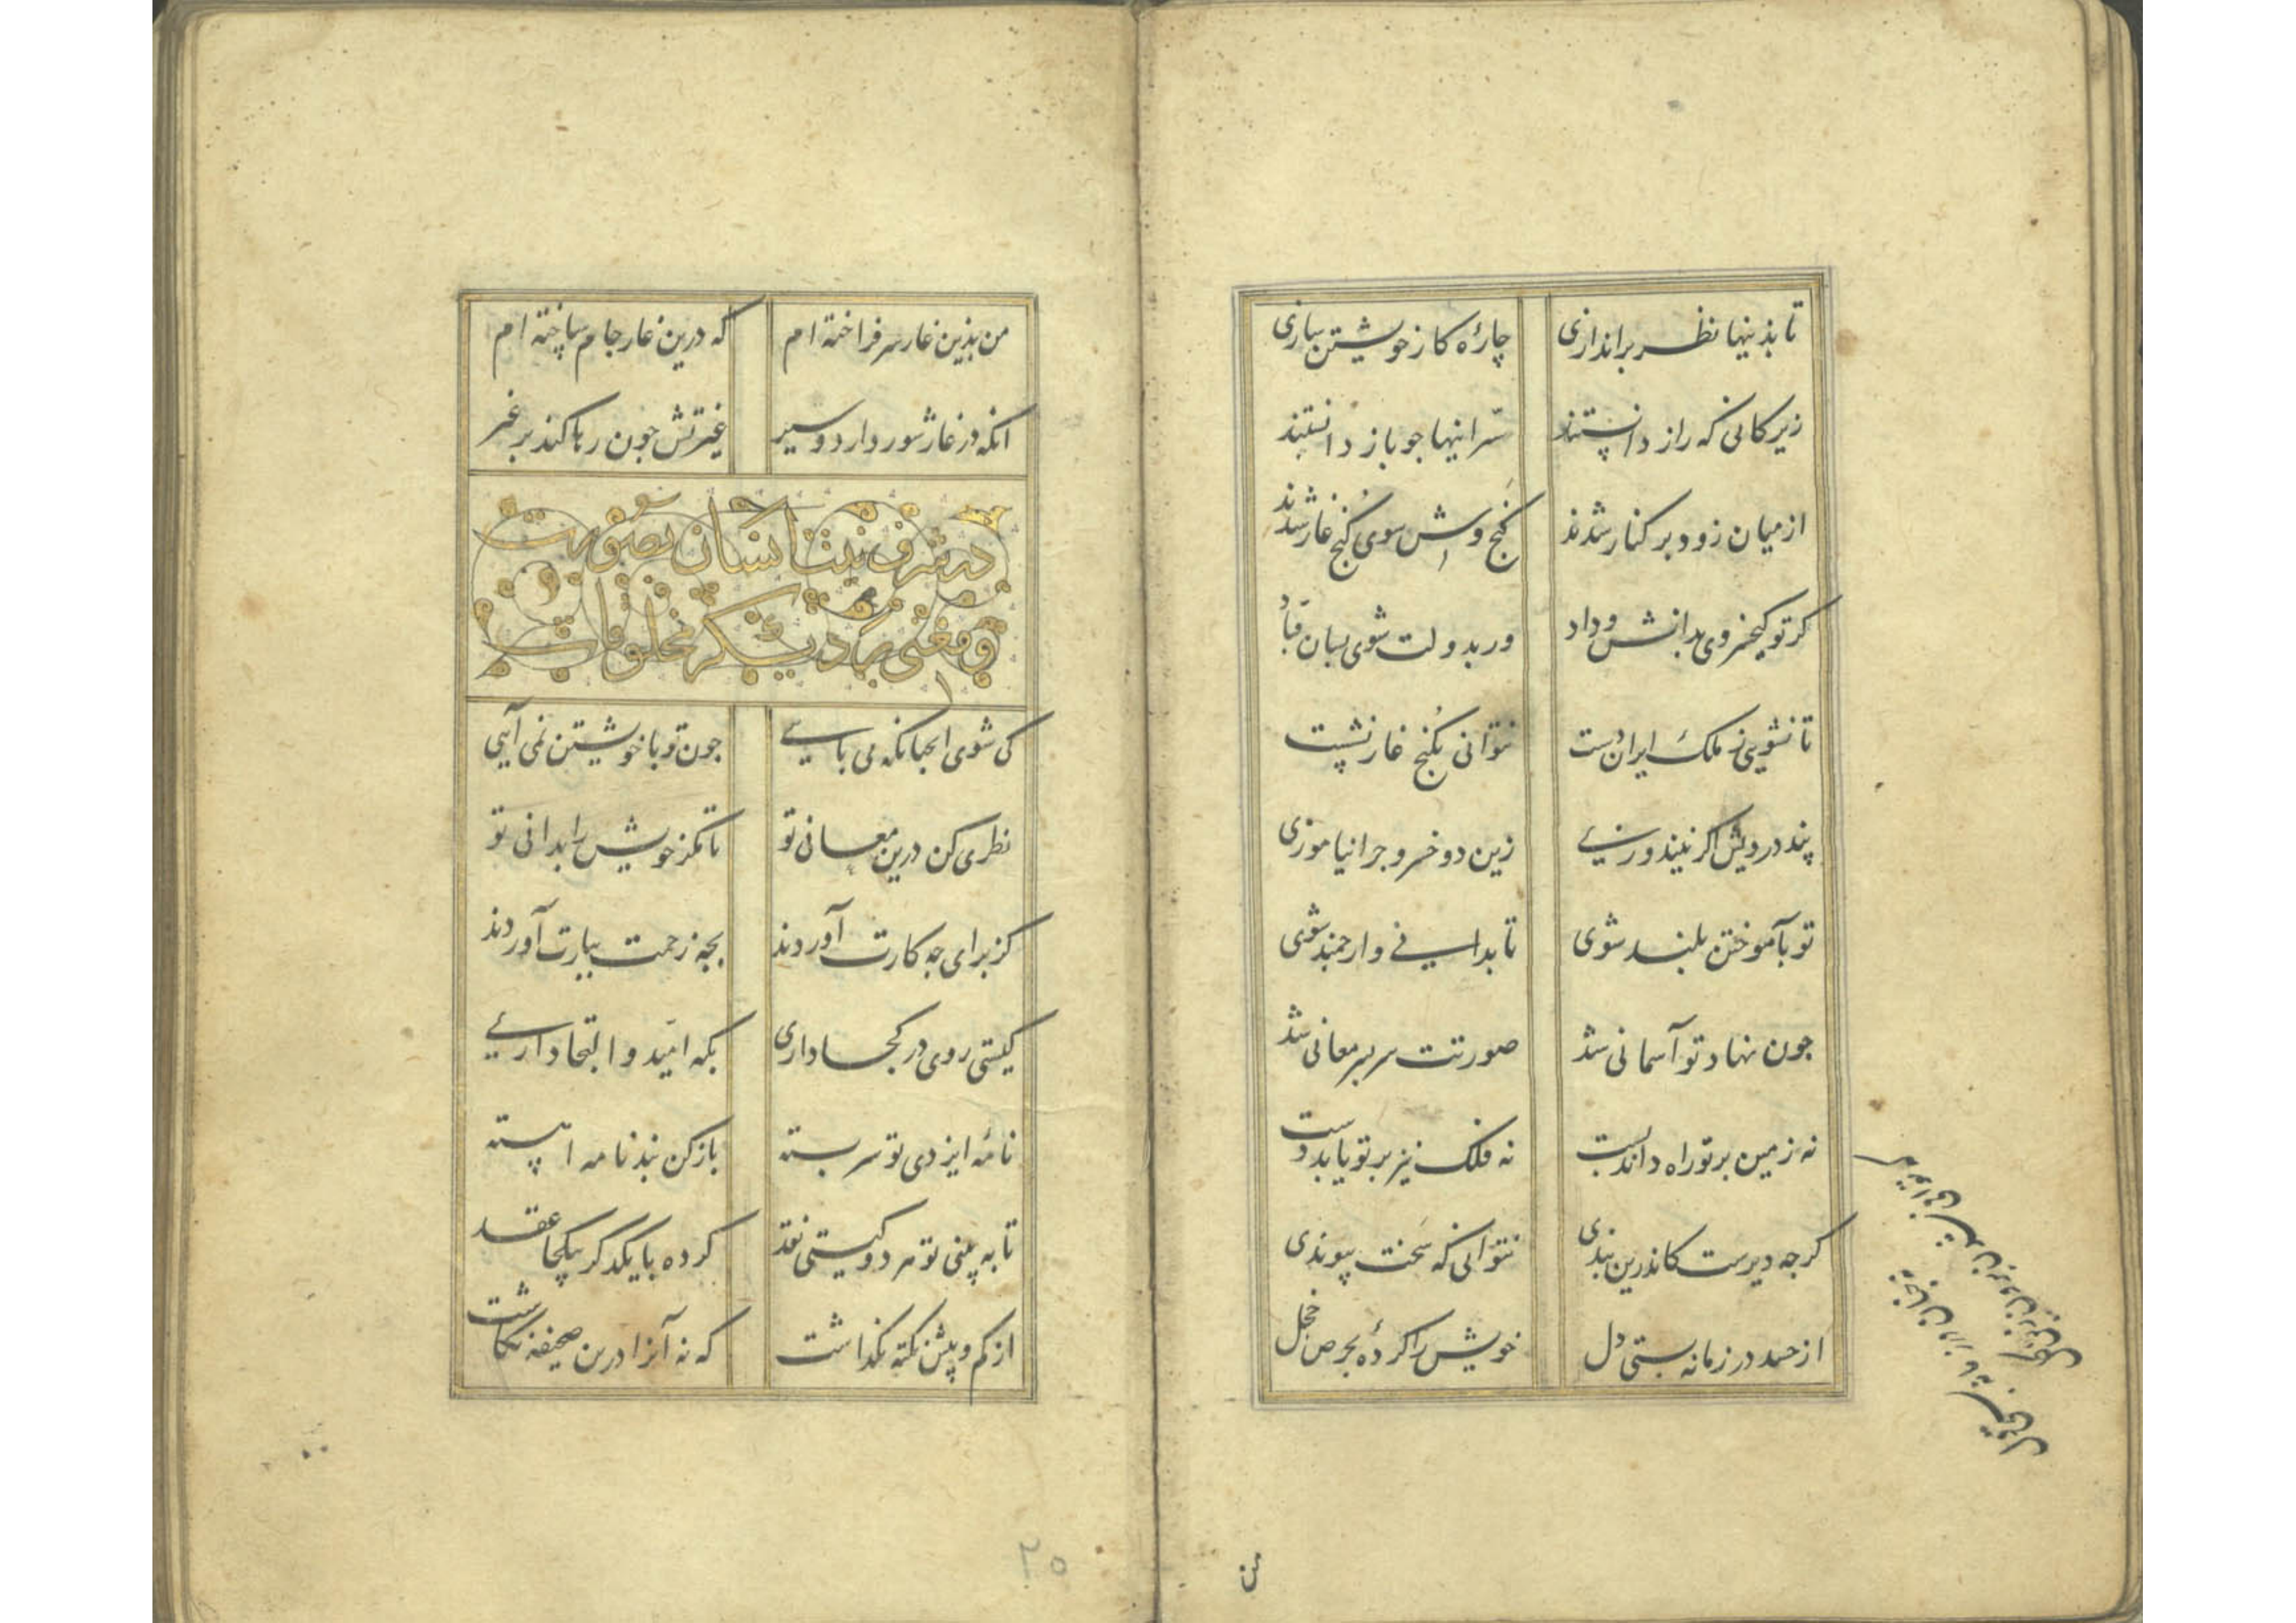 تا بذینها نظر براندازی چارهٔ کار خویشتن سازی
زیرکانی که راز دانستند سرّ اینها جو باز دانستند
از میان زود بر کنار شدند کنج وش سوی کنج غار شدند
کر تو کیخسروی بدانش و داد ور بدولت شوی بسان قباد
تا نشویی ز ملک ایران دست نتوانی بکنج غار نشست
پند درویش اکر نیندوزی زین دو خسرو جرا نیاموزی
تو بآموختن بلند شوی تا بدانی و ارجمند شوی
جون نهاد تو آسمانی شد صورتت سربسر معانی شد
نه زمین بر تو راه داند بست نه فلک نیز بر تو یابد دست
کرجه دیرست کاندرین بندی نتوانی که سخت پیوندی
از حسد در زمانه بستی دل خویش را کردهٔ بحرص خجل
من بذین غار سر فراخته ام که درین غار جام ساخته ام
انکه در غار شور دارد و سیر غیرتش جون رها کند بر غیر
در شرف بنیت انسان بصورت
و معنی بر دیکر مخلوقات
کی شوی انجنانکه می بایی جون تو با خویشتن نمی آیی
نظری کن درین معانی تو تا مکر خویش را بدانی تو
کز برای جه کارت آوردند بجه زحمت ببارت آوردند
کیستی روی در کجا داری بکه امّید و التجا داری
نامهٔ ایزدی تو سربسته باز کن بند نامه اهسته
تا به بینی تو هر دو کیتی نقد کرده با یکدکر بیکجا عقد
از کم و بیش نکته نکذاشت که نه آنرا درین صحیفه نکاشت
من
۲۵